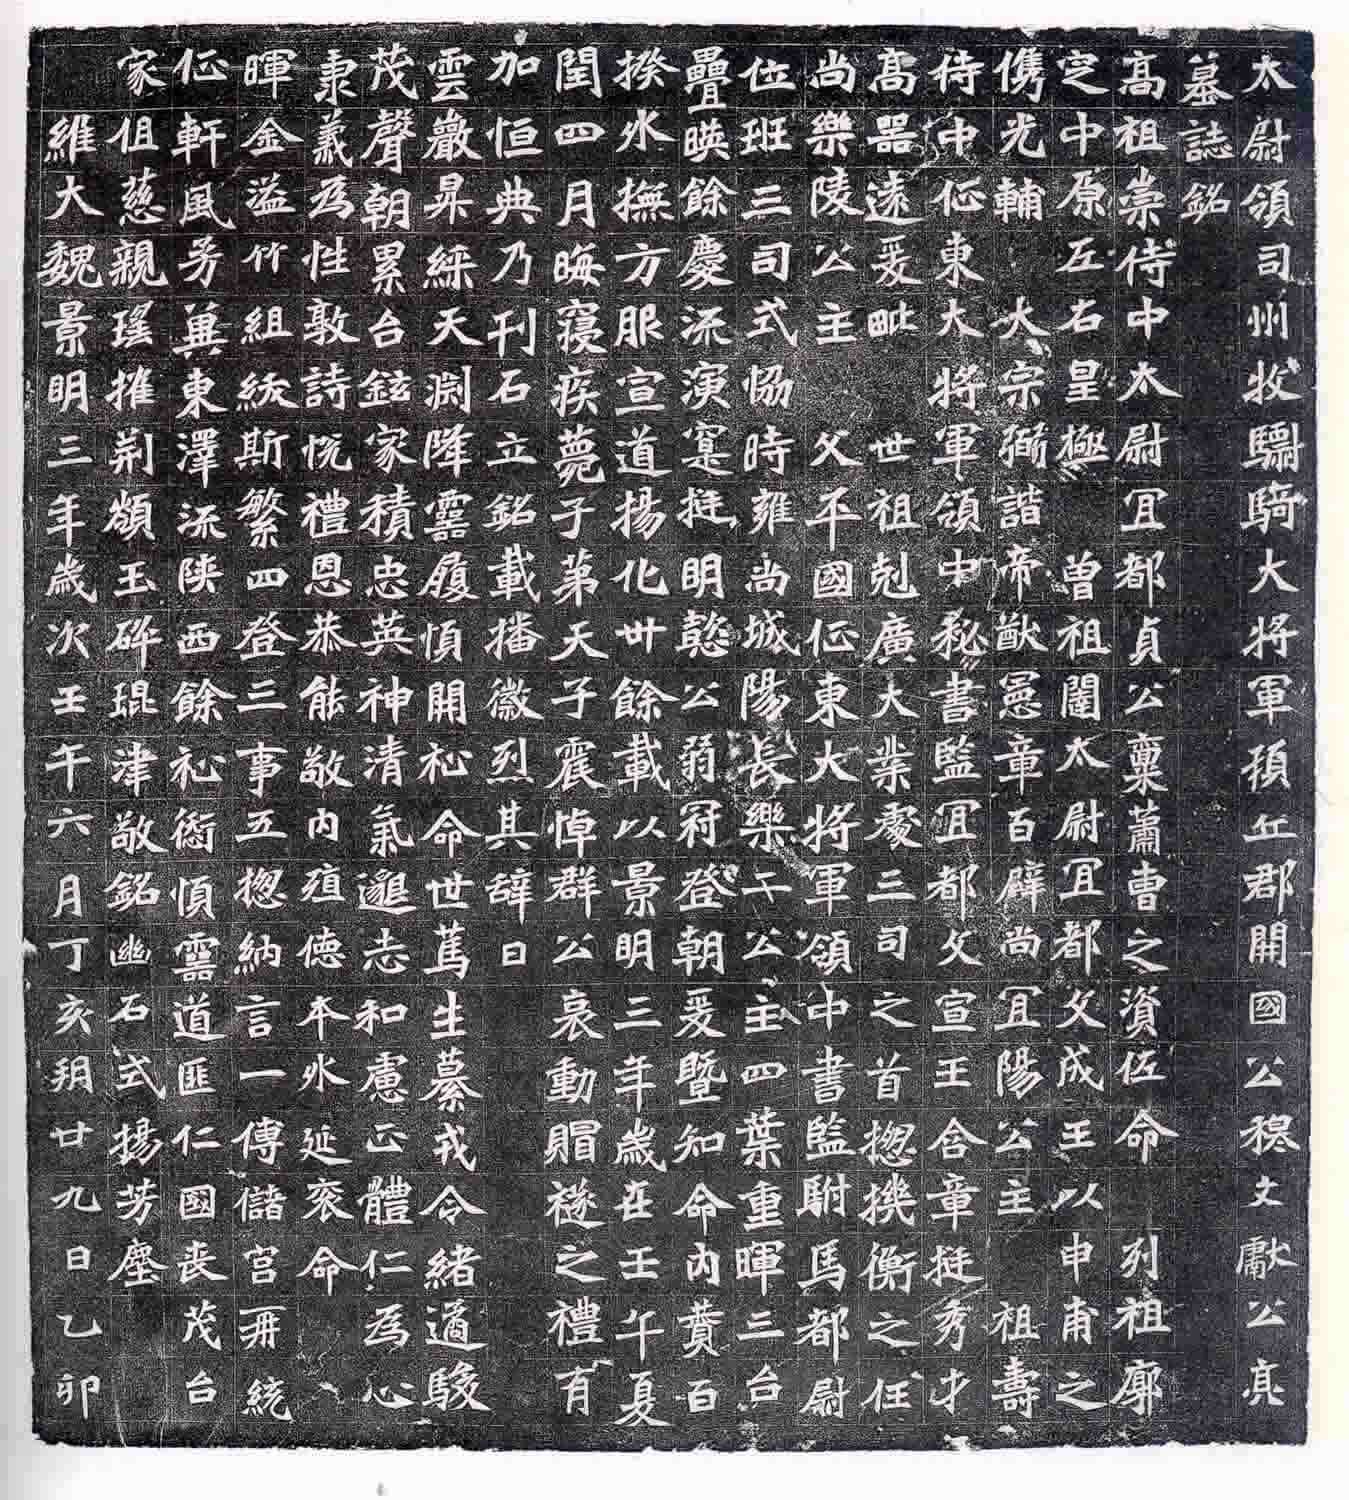 太尉領司州牧驃騎大將軍頓丘郡開國公穆文獻公亮
墓誌銘
高祖崇侍中太尉冝都貞公稟蕭曹之資佐命 列祖廓
㝎中原左右皇極 曾祖闥太尉冝都文成王以申甫之
儁光輔 大宗弼諧帝猷憲章百辟尚冝陽公主 祖壽
侍中征東大將軍領中秘書監冝都文宣王含章挺秀才
高器遠爰毗 世祖剋廣大業處三司之首揔機衡之任
尚樂陵公主 父平國征東大將軍領中書監駙馬都尉
位班三司式恊時雍尚城陽長樂二公主四葉重暉三台
疊暎餘慶流演寔挺明懿公弱冠登朝爰暨知命內賛百
揆外撫方服宣道揚化卅餘載以景明三年歲在壬午夏
閏四月晦寢疾薨子苐天子震悼群公哀動賵襚之禮有
加恒典乃刊石立銘載播徽烈其辞曰
雲巖昇綵天淵降靈履順開祉命世篤生纂戎令緒適駿
茂聲朝累台鉉家積忠英神清氣邈志和慮正體仁為心
秉義為性敦詩悅禮恩恭能敬內殖德本外延衮命
暉金溢竹組綬斯繁四登三事五揔納言一傅儲宮再統
征軒風芳冀東澤流陝西餘祉銜順靈道匪仁國丧茂台
家徂慈親瑤摧荊頹玉碎琨津敬銘幽石式揚芳塵
維大魏景明三年歲次壬午六月丁亥朔廿九日乙卯